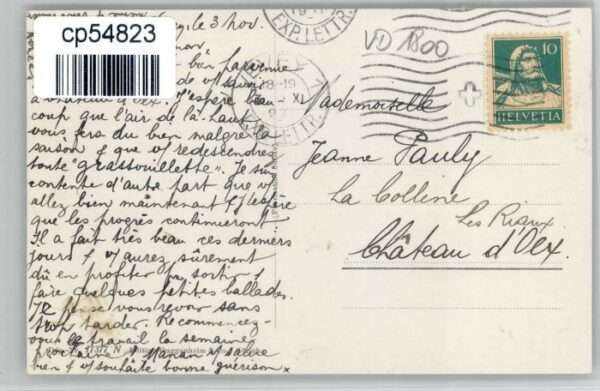 cp54823
3 nov.
bien parvenue
de v/ savoir
à Château d'Oex. J'espère beau-
coup que l'air de là-haut
vous fera du bien malgré la
saison & que v/ redescendrez
toute "grassouillette". Je suis
contente d'autre part que v/
allez bien maintenant & j'espère
que les progrès continueront!
Il a fait très beau ces derniers
jours & v/ aurez sûrement
dû en profiter pr sortir &
faire quelques petites ballades.
Je pense vous revoir sans
trop tarder. Recommencez-
vous le travail la semaine
prochaine? Maman v/ salue
bien & v/ souhaite bonne guérison x
EXP. LETTR.
18-19
XI
VD 1800
10
HELVETIA
Mademoiselle
Jeanne Pauly
La Colline
Les Riaux
Château d'Oex.